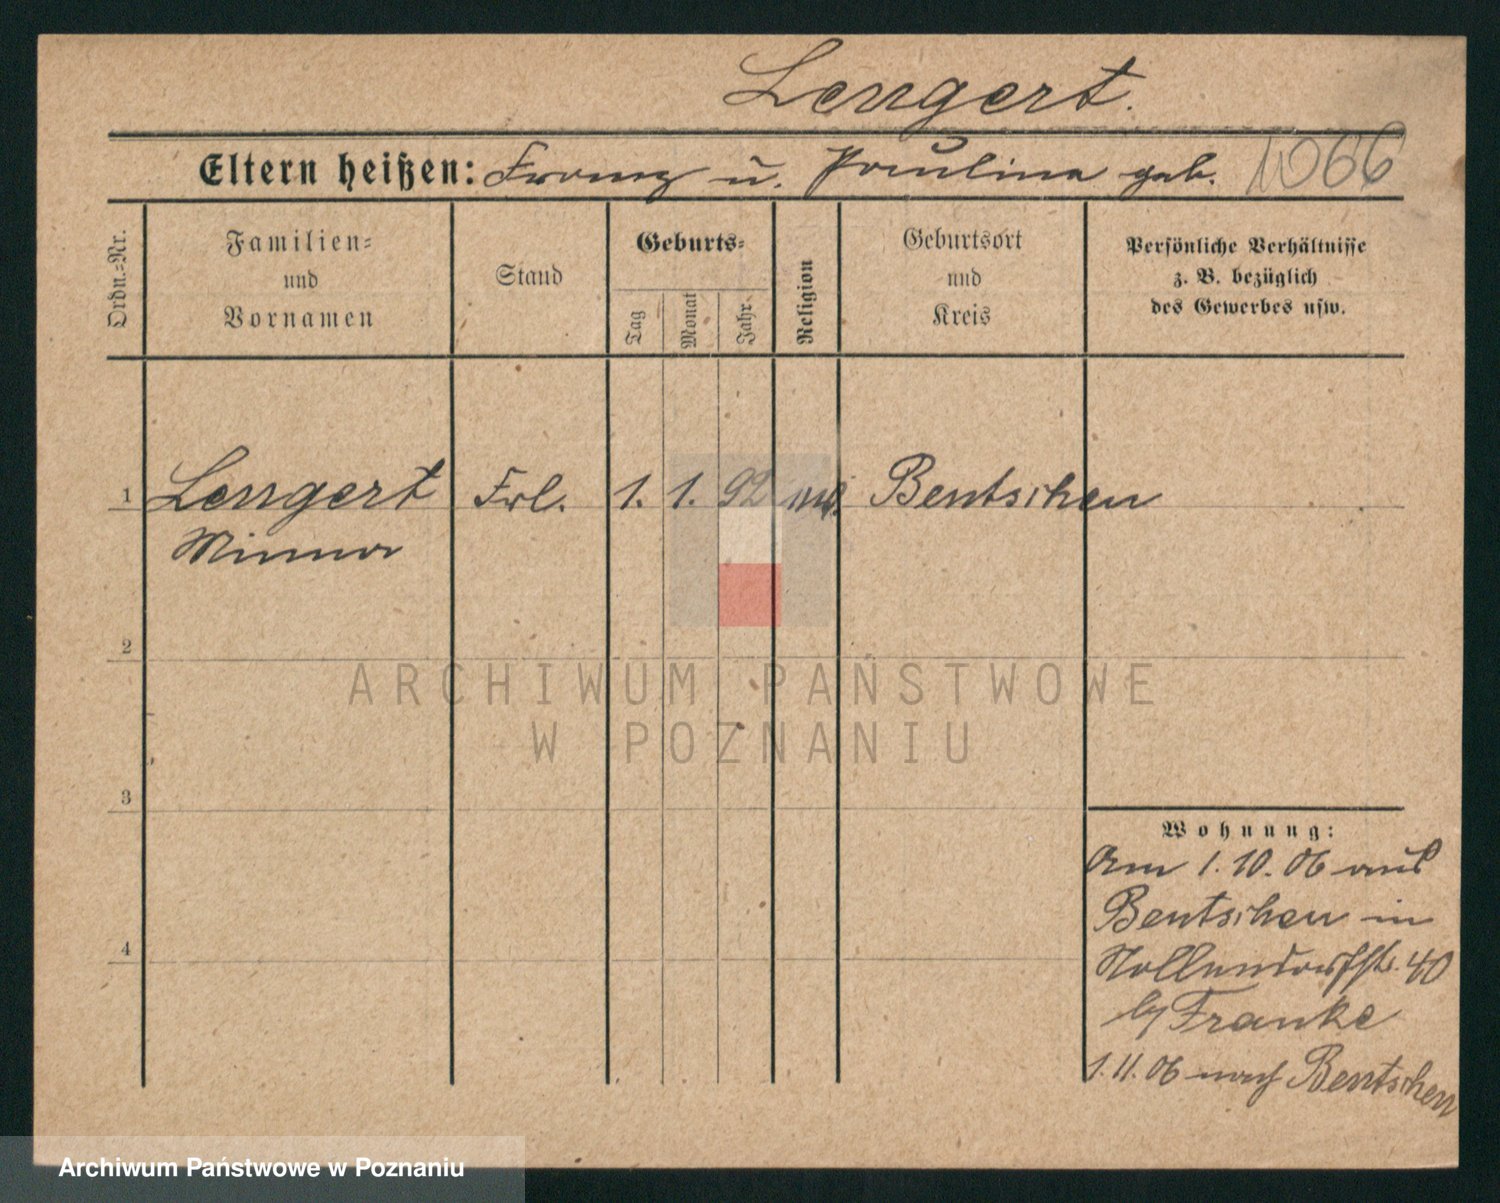 Lengert.
Eltern heißen: Franz u. Paulina geb. 1066
Ordn.=Nr.
Familien=
und
Vornamen
Stand
Geburts=
Tag
Monat
Jahr
Religion
Geburtsort
und
Kreis
Persönliche Verhältnisse
z. B. bezüglich
des Gewerbes usw.
1 Lengert Frl. 1. 1. 92 Bentschen
Minna
2
ARCHIWUM PAŃSTWOWE
W POZNANIU
3
Wohnung:
Am 1.10.06 aus
Bentschen in
Nollendorfstr. 40
b/ Franke
1.11.06 nach Bentschen
4
Archiwum Państwowe w Poznaniu